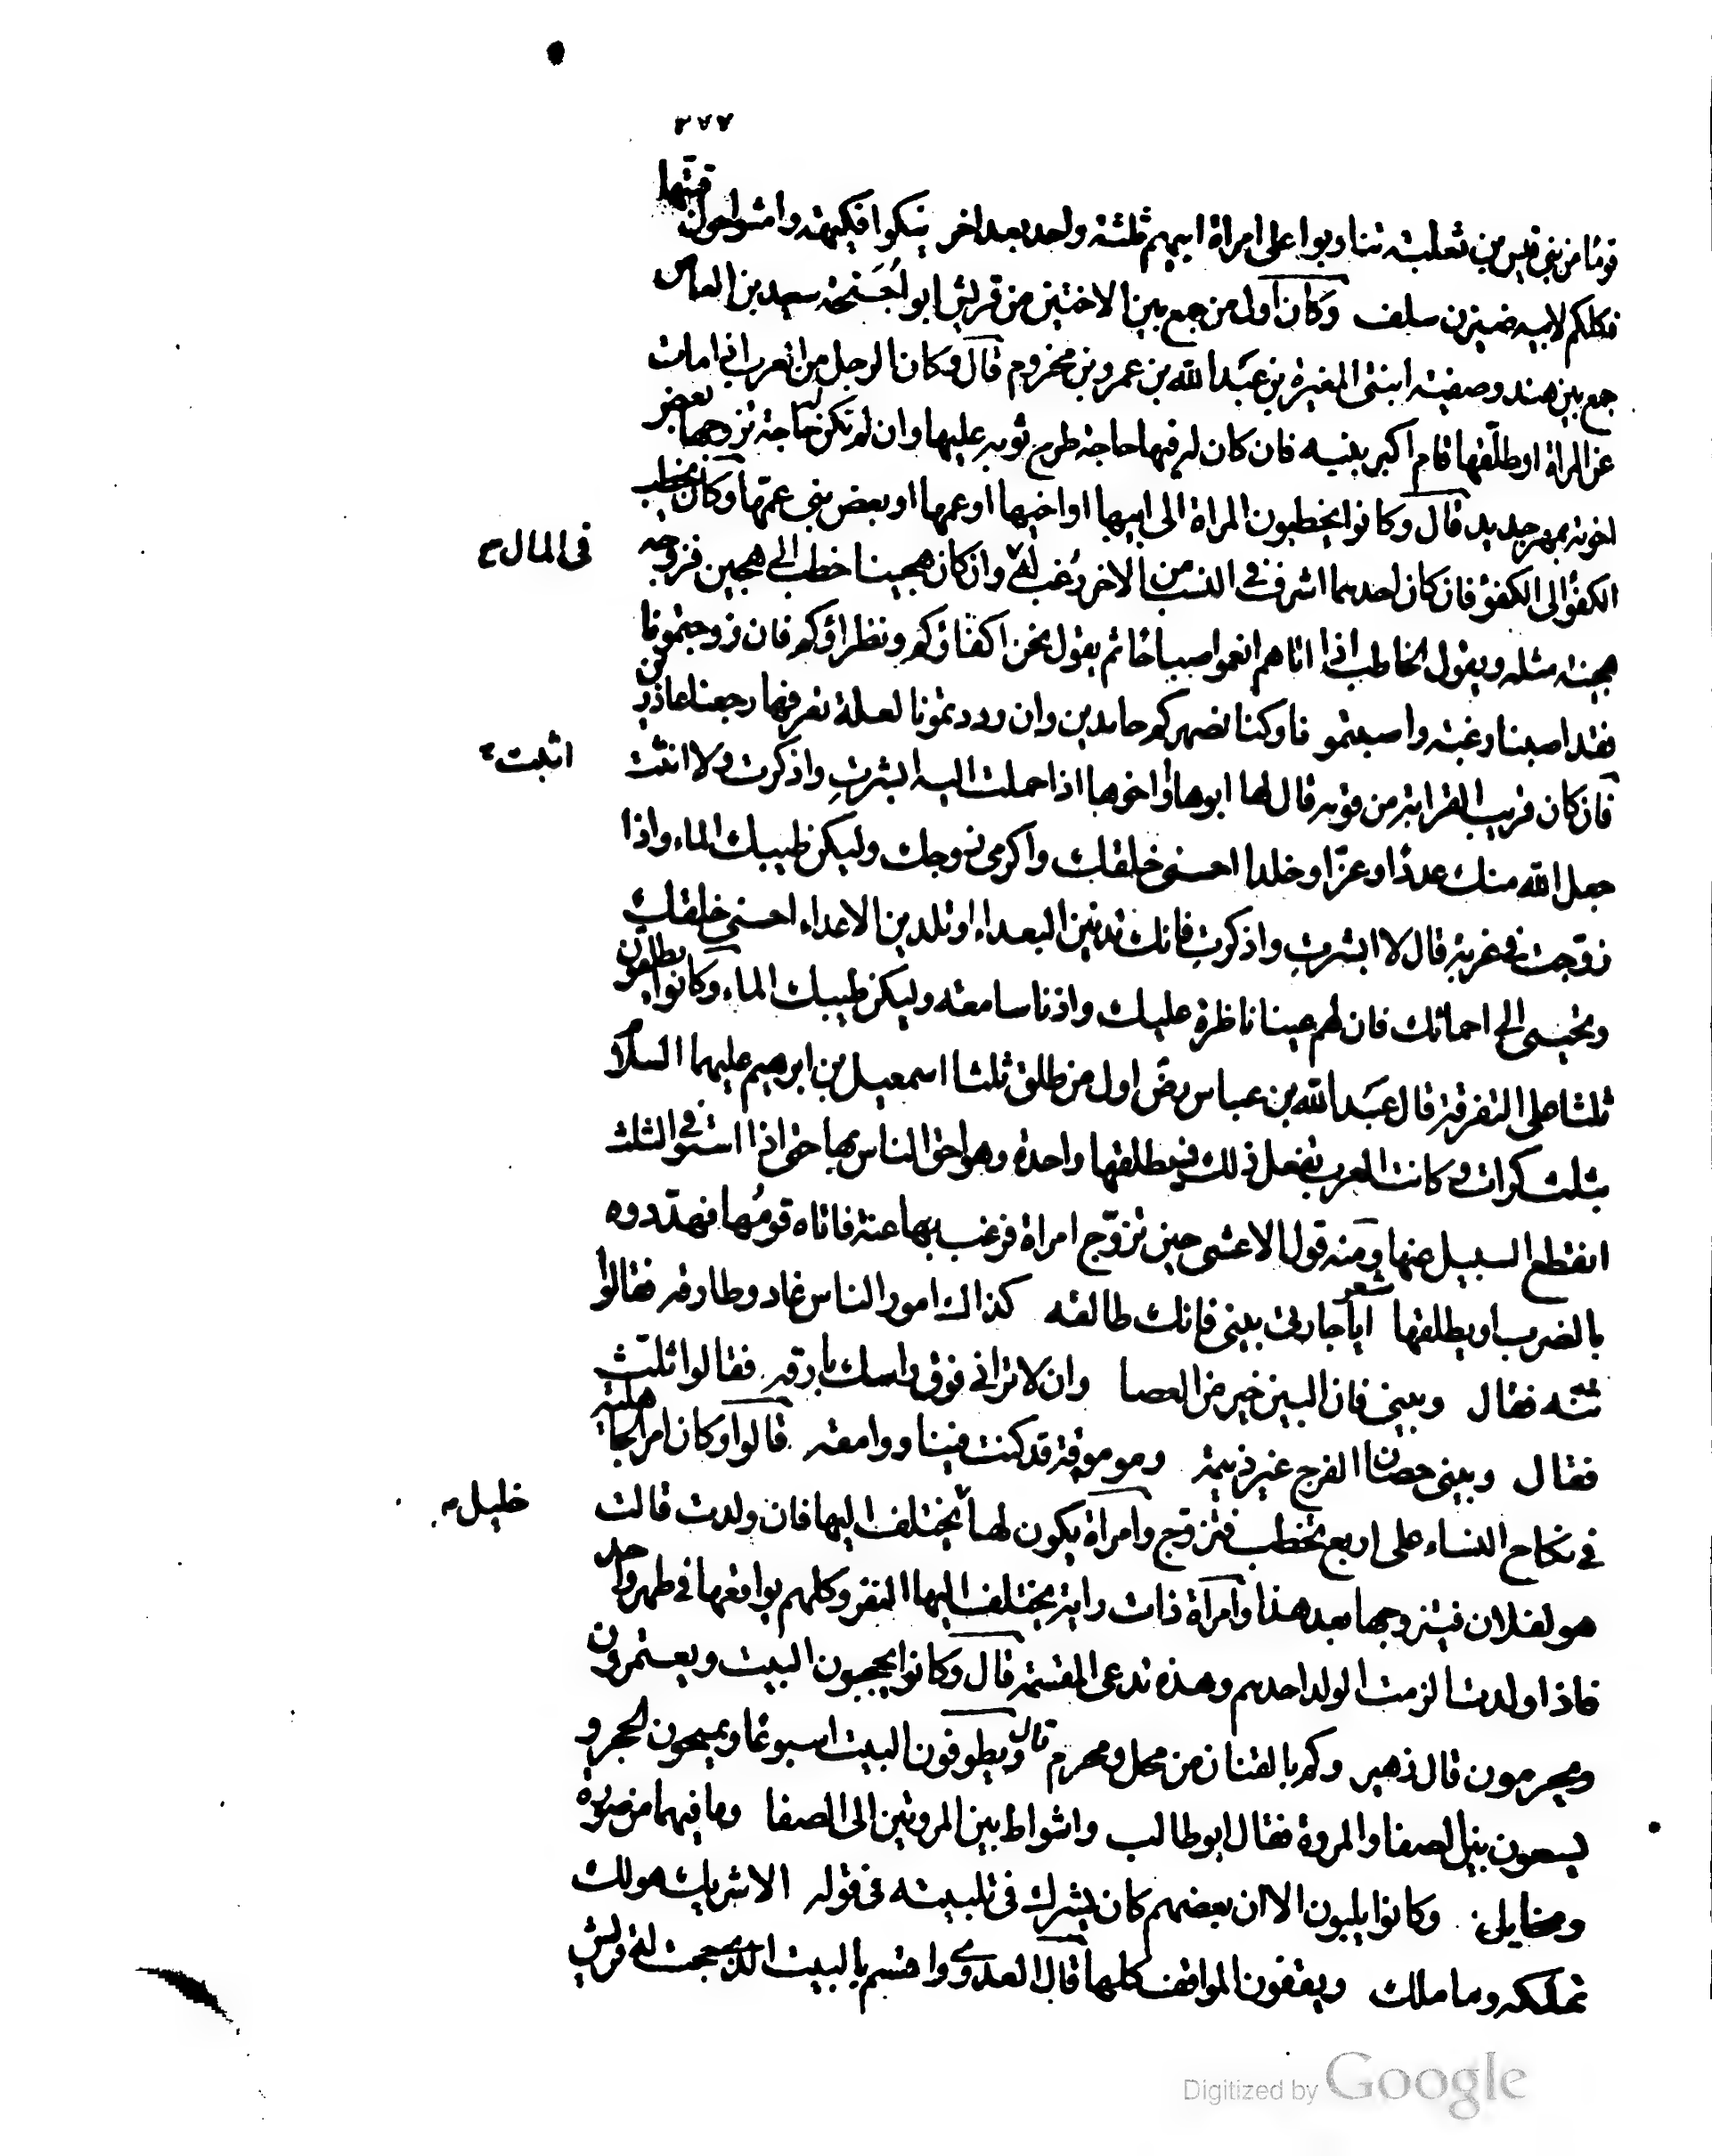 ٢٧٧
قومًا من بني قيس بن ثعلبة تناوبوا على امراة ابيهم ثلثة واحد بعد اخر ينكوا فكيهة وامشوا حول قبتها
فكلكم لابيه ضيزن سلف وكان اول من جمع بين الاختين من قريش ابو احيحة سعيد بن العاص
جمع بين هند وصفية ابنتى المغيرة بن عبد الله بن عمرو بن مخزوم قال وكان الرجل من العرب اذا مات
عن المراة او طلقها قام اكبر بنيه فان كان له فيها حاجة طرح ثوبه عليها وان لم تكن له حاجة تزوجها بعض
اخوته بمهر جديد قال وكانوا يخطبون المراة الى ابيها او اخيها او عمها او بعض بنى عمها وكان يخطب
الكفؤ الى الكفؤ فان كان احدهما اشرف فى النسب من الاخر رغب له وان كان هجينا خطب الى هجين فزوجه
فى المال
هجينة مثله ويقول الخاطب اذا اتاهم انعموا صباحا ثم يقول نحن اكفاؤكم ونظراؤكم فان زوجتمونا
فقد اصبنا رغبة واصبتمونا وكنا لصهركم حامدين وان رددتمونا لعلة نعرفها رجعنا عاذرين
فان كان قريب القرابة من قومه قال لها ابوها او اخوها اذا حملت اليه ايسرت واذكرت ولا انثت
اثبت
جعل الله منك عددا وعزا وخلدا احسنى خلقك واكرمى زوجك وليكن طيبك الماء واذا
زوجت فى غربة قال لا ايسرت واذكرت فانك تدنين البعداء او تلدين الاعداء احسنى خلقك
وتحببى الى احمائك فان لهم عينا ناظرة عليك واذنا سامعة وليكن طيبك الماء وكانوا يطلقون
ثلثا على التفرقة قال عبد الله بن عباس رض اول من طلق ثلثا اسمعيل بن ابرهيم عليهما السلام
بثلث كرات وكانت العرب تفعل ذلك فيطلقها واحدة وهو احق الناس بها حتى اذا استوفى الثلث
انقطع السبيل عنها ومنه قول الاعشى حين تزوج امراة فرغب بها عنه فاتاه قومها فهددوه
بالضرب او يطلقها شعر ايا جارتى بينى فانك طالقه كذاك امور الناس غاد وطارقه فقالوا
ثنه فقال وبينى فان البين خير من العصا وان لا ترانى فوق راسك بارقه فقالوا ثلث
فقال وبينى حصان الفرج غير ذميمة وموموقة قد كنت فينا ووامقه قالوا وكان امر الجاهلية
فى نكاح النساء على اربع تخطب فتزوج وامراة يكون لها يختلف اليها فان ولدت قالت
خليل
هو لفلان فيتزوجها بعد هذا وامراة ذات راية يختلف اليها النفر وكلهم يواقعها فى طهر واحد
فاذا ولدت الزمت الولد احدهم وهذه تدعى المقسمة قال وكانوا يحجون البيت ويعتمرون
ويحرمون قال زهير وكم بالقنان من محل ومحرم قال ويطوفون البيت اسبوعا ويمسحون الحجر و
يسعون بين الصفا والمروة فقال ابو طالب واشواط بين المروتين الى الصفا وما فيهما من صورة
ومخايل وكانوا يلبون الا ان بعضهم كان يشرك فى تلبيته فى قوله الا شريك هو لك
تملكه وما ملك ويقفون المواقف كلها قال العدوى واقسم بالبيت الذى حجت له قريش
Digitized by Google